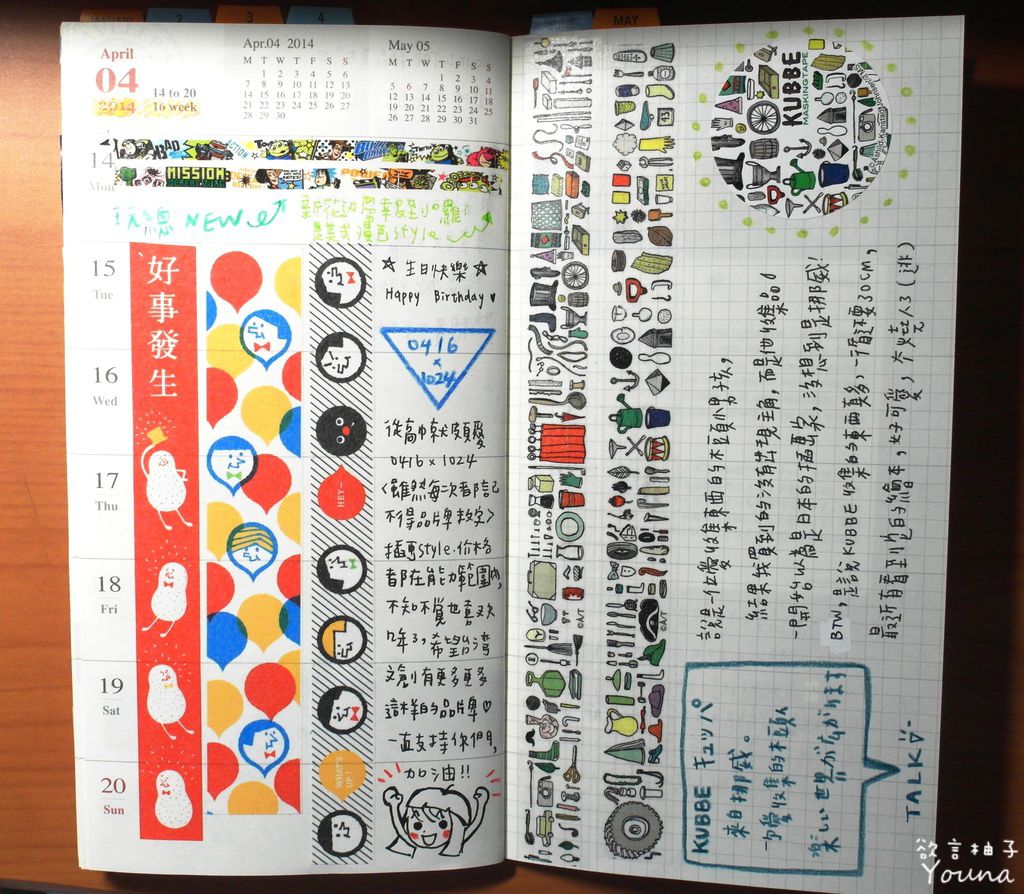 JANUARY
2
3
4
JUNE
MAY
April
04
2014
14 to 20
16 week
Apr.04 2014
M T W T F S S
1 2 3 4 5 6
7 8 9 10 11 12 13
14 15 16 17 18 19 20
21 22 23 24 25 26 27
28 29 30
May 05
M T W T F S S
1 2 3 4
5 6 7 8 9 10 11
12 13 14 15 16 17 18
19 20 21 22 23 24 25
26 27 28 29 30 31
14
Mon
ACTION
MISSION
玩總 NEW
是美式漫画style
15
Tue
16
Wed
17
Thu
18
Fri
19
Sat
20
Sun
好事發生
HEY~
WHAT'S UP!
☆ 生日快樂 ☆
Happy Birthday ♥
0416
×
1024
從高中就頗愛
0416 x 1024
<雖然每次都記
不得品牌數字>
插畫style.價格
都在能力範圍內,
不知不覺也喜歡
哖了,希望台灣
文創有更多更多
這樣的品牌♡
一直支持你們,
加油!!
KUBBE
MASKINGTAPE
說是一位愛收集東西的木頭小男孩,
結果我買到的沒有出現主角,而是他收集品
一開始以為是日本的插畫家,沒想到是挪威!
BTW,是說KUBBE收集的東西真多,一循環要30cm,
最近有看到他的繪本,好可愛,不燒人3(逃)
KUBBE キュッパ
來自挪威。
力愛收集的木頭人
楽しい世界がながります
TALK
欲言柚子
Youna